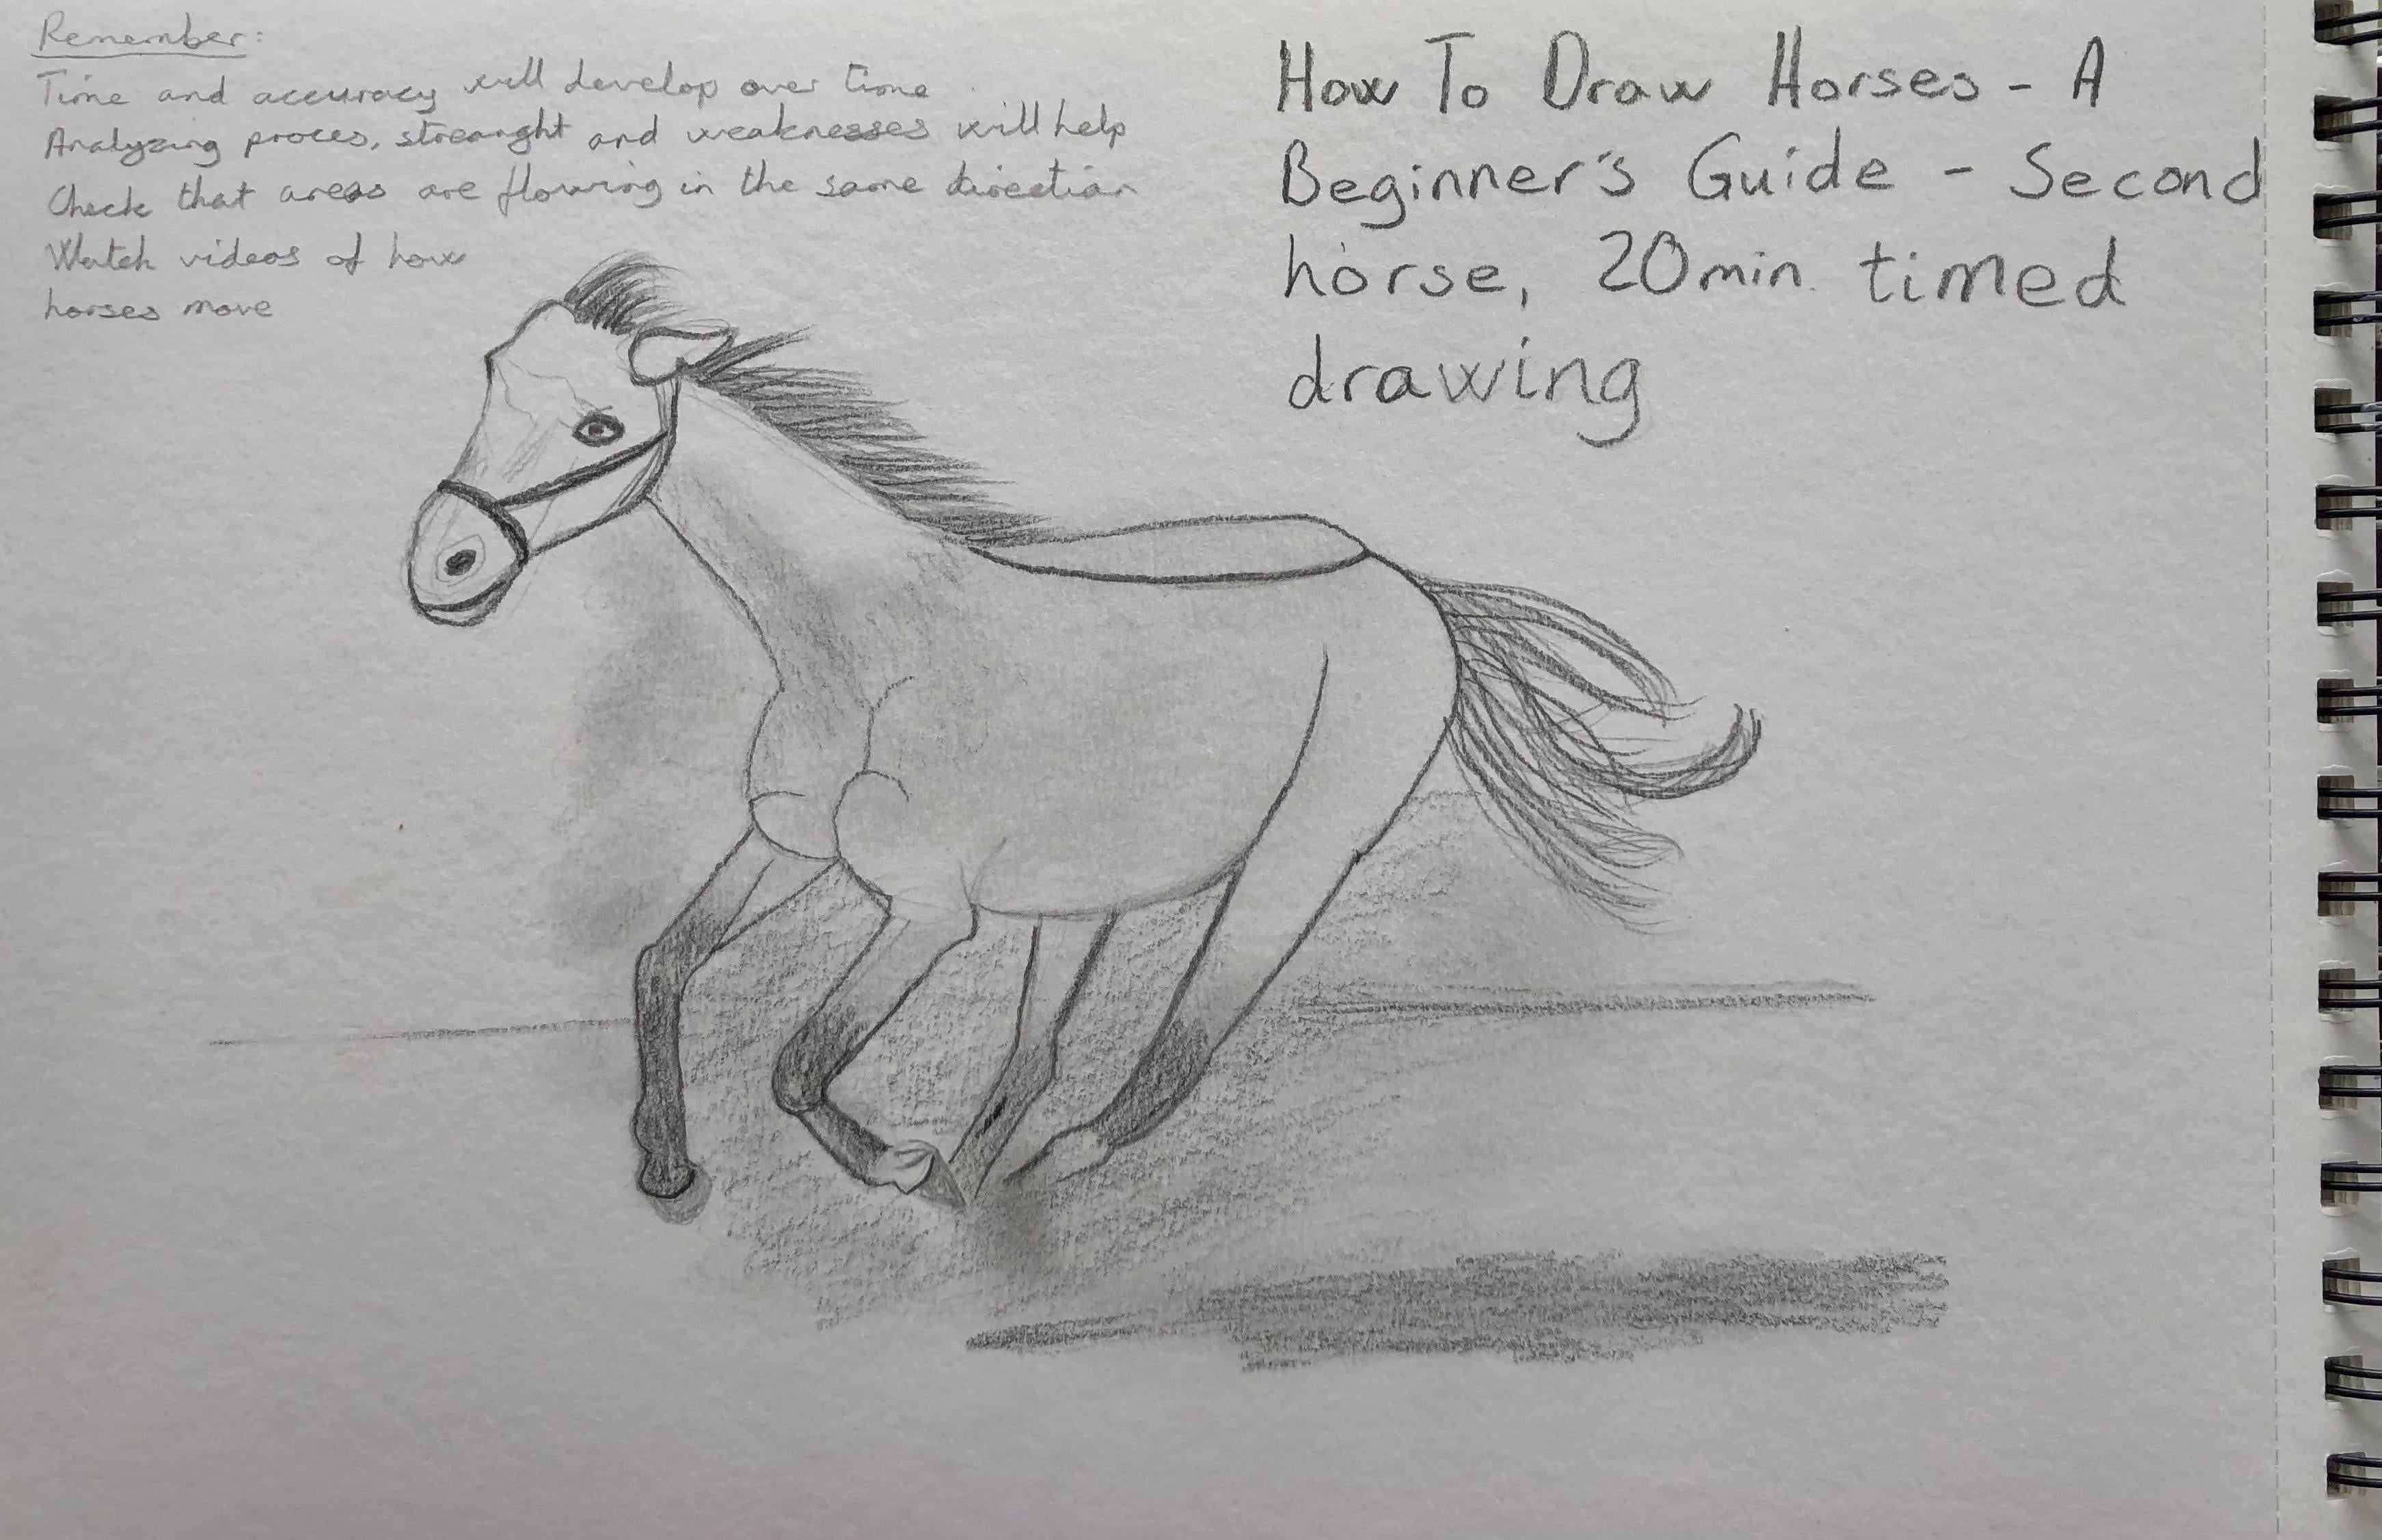 Remember:
Time and accuracy will develop over time
Analyzing proces, streanght and weaknesses will help
Check that areas are flowing in the same direction
Watch videos of how
horses move
How To Draw Horses - A
Beginner's Guide - Second
horse, 20min. timed
drawing